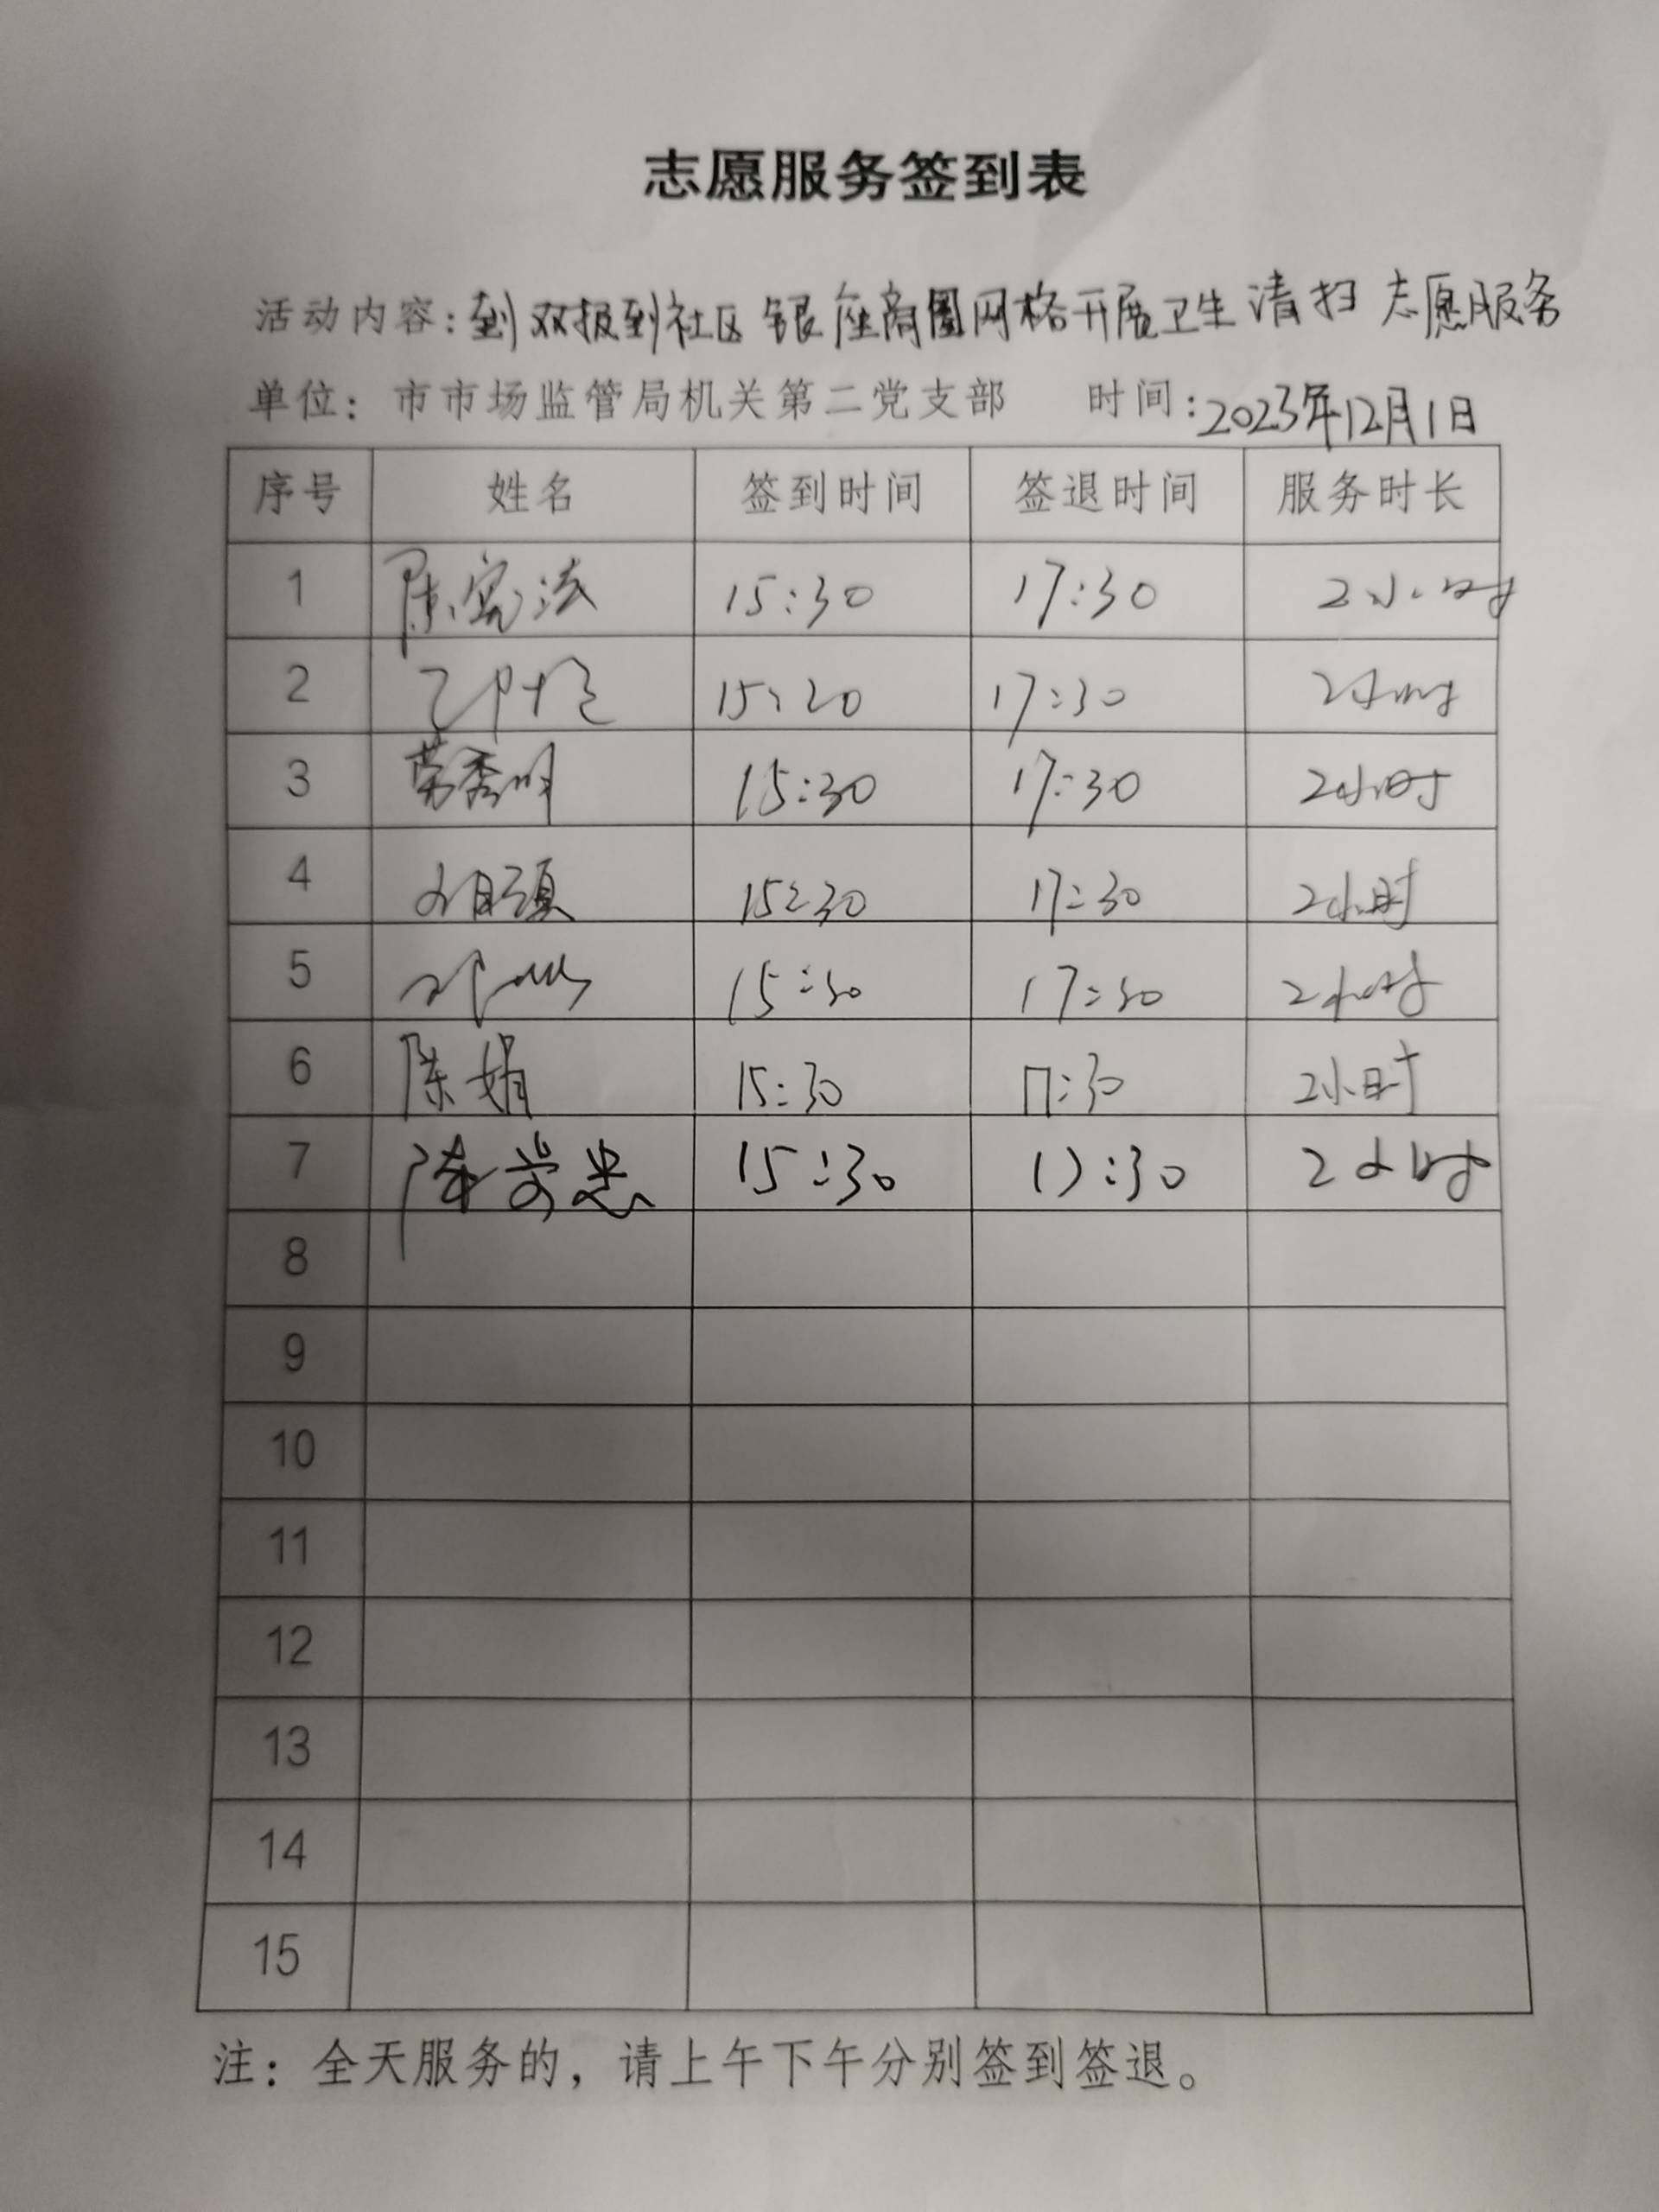 志愿服务签到表
活动内容:到双报到社区银座商圈网格开展卫生清扫志愿服务
单位:市市场监管局机关第二党支部 时间:2023年12月1日
序号 姓名 签到时间 签退时间 服务时长
1 陈宪法 15:30 17:30 2小时
2 15:20 17:30 2小时
3 荣秀明 15:30 17:30 2小时
4 15:30 17:30 2小时
5 15:30 17:30 2小时
6 陈娟 15:30 17:30 2小时
7 15:30 17:30 2小时
8
9
10
11
12
13
14
15
注:全天服务的,请上午下午分别签到签退。